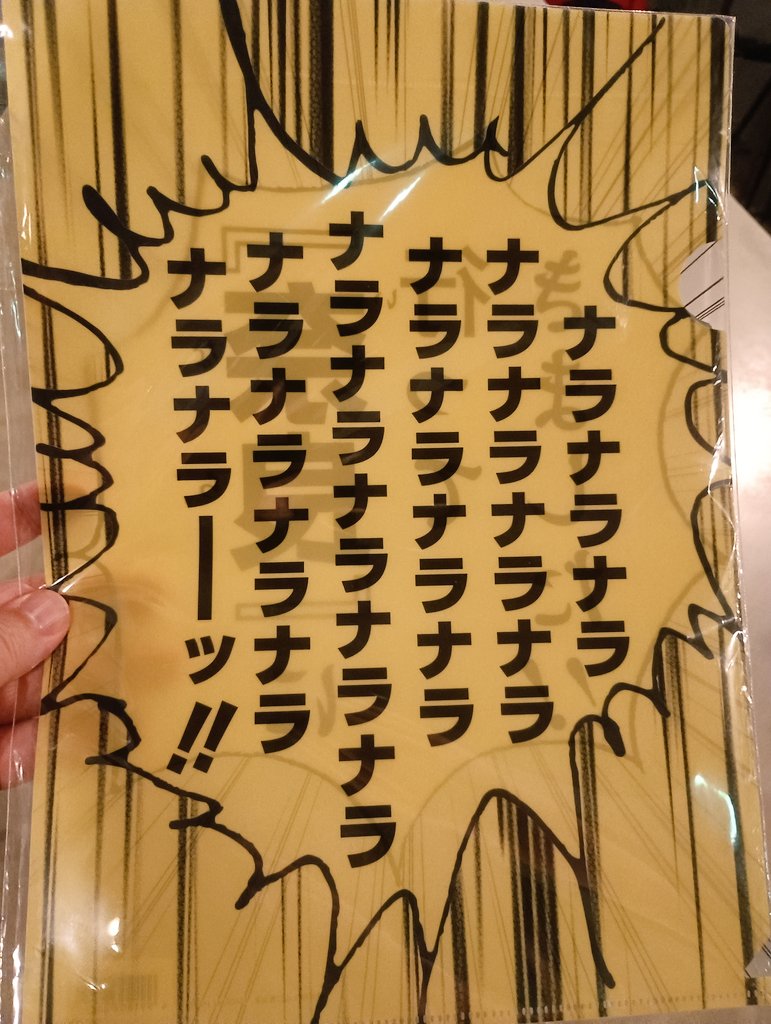 ナラナラナラ
ナラナラナラナラ
ナラナラナラナラ
ナラナラナラナラナラ
ナラナラナラナラ
ナラナラーッ!!